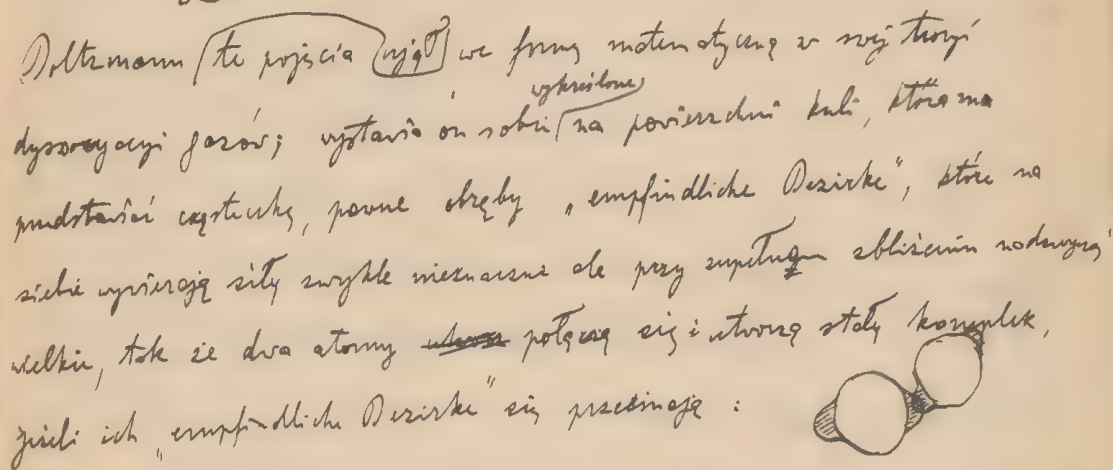 Boltzmann te pojęcia ujął we formę matematyczną w swej teoryi
wykreślone
dysocyacyi gazów; wystawia on sobie na powierzchni kuli, która ma
przedstawiać cząsteczkę, pewne obręby „empfindliche Bezirke", które na
siebie wywierają siły zwykle nieznaczne ale przy zupełnym zbliżeniu nadzwyczaj
wielkie, tak że dwa atomy połączą się i utworzą stały kompleks,
jeżeli ich „empfindliche Bezirke" się przecinają :